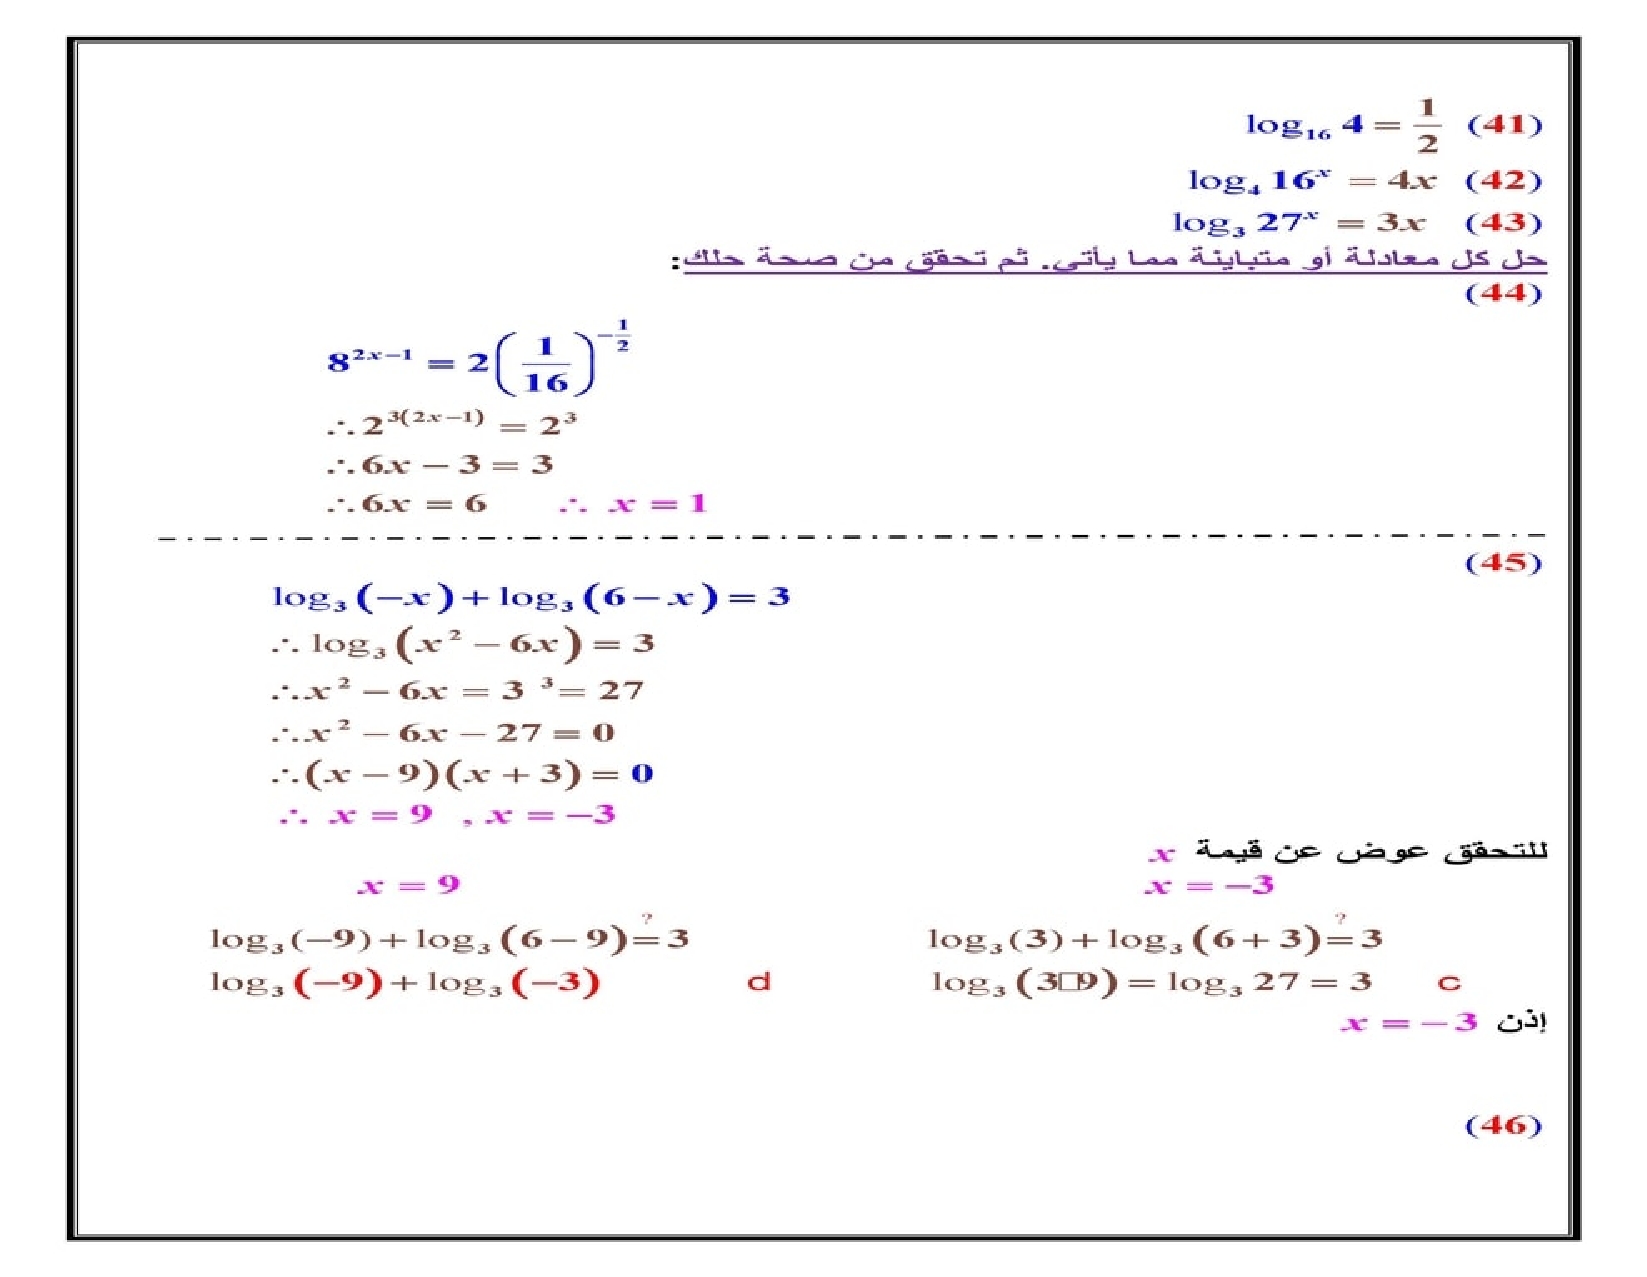 (41) log₁₆ 4 = 1/2
(42) log₄ 16ˣ = 4x
(43) log₃ 27ˣ = 3x
حل كل معادلة أو متباينة مما يأتي. ثم تحقق من صحة حلك:
(44)
8^(2x−1) = 2(1/16)^(−1/2)
∴ 2^(3(2x−1)) = 2³
∴ 6x − 3 = 3
∴ 6x = 6 ∴ x = 1
(45)
log₃(−x) + log₃(6 − x) = 3
∴ log₃(x² − 6x) = 3
∴ x² − 6x = 3 ³ = 27
∴ x² − 6x − 27 = 0
∴ (x − 9)(x + 3) = 0
∴ x = 9 , x = −3
للتحقق عوض عن قيمة x
x = −3
log₃(3) + log₃(6 + 3) ≟ 3
log₃(3□9) = log₃ 27 = 3 c
x = 9
log₃(−9) + log₃(6 − 9) ≟ 3
log₃(−9) + log₃(−3) d
إذن x = −3
(46)